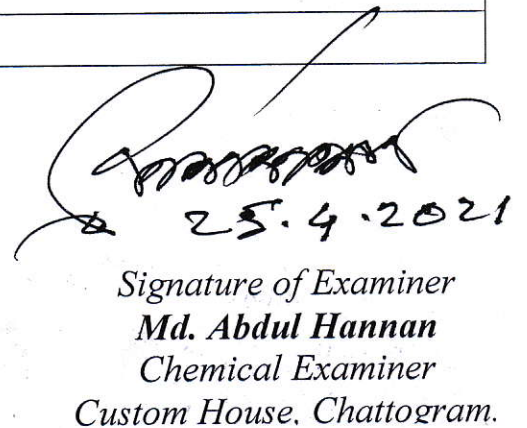 25.4.2021
Signature of Examiner
Md. Abdul Hannan
Chemical Examiner
Custom House, Chattogram.